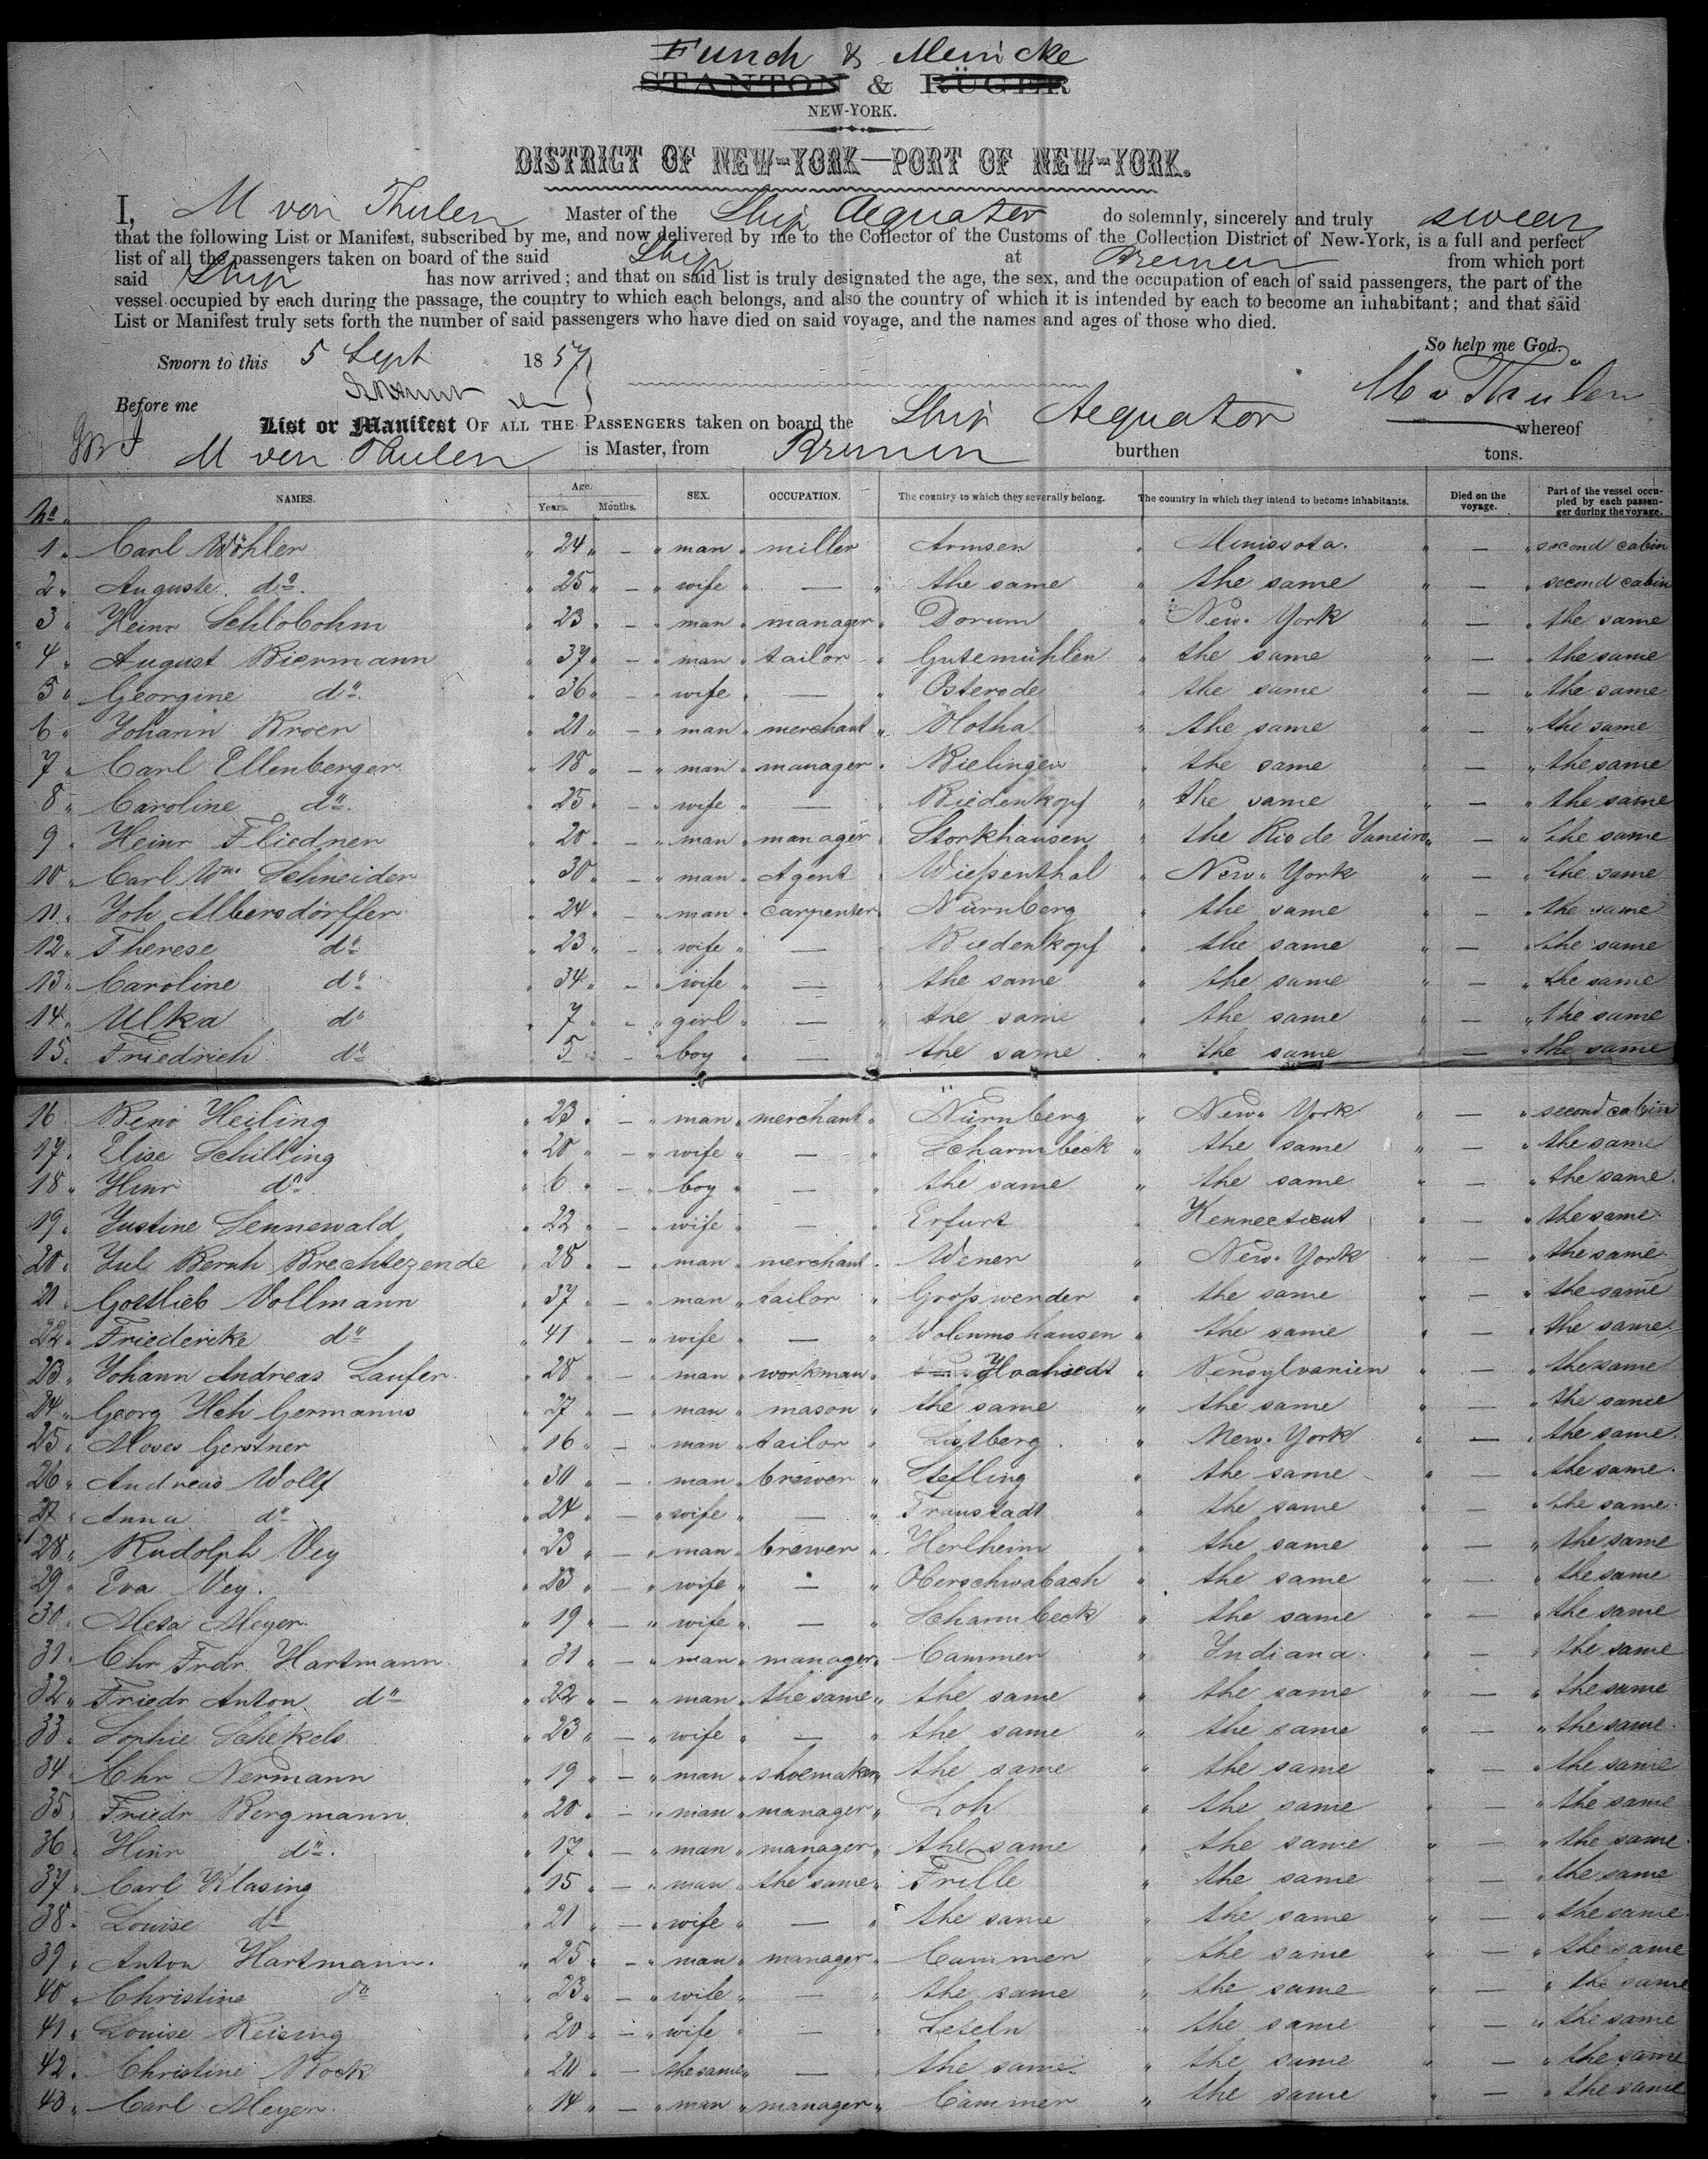 Funch & Meincke
STANTON & RÜGER
NEW-YORK.
DISTRICT OF NEW-YORK—PORT OF NEW-YORK.
I, M von Thulen Master of the Ship Aequator do solemnly, sincerely and truly swear
that the following List or Manifest, subscribed by me, and now delivered by me to the Collector of the Customs of the Collection District of New-York, is a full and perfect
list of all the passengers taken on board of the said Ship at Bremen from which port
said Ship has now arrived; and that on said list is truly designated the age, the sex, and the occupation of each of said passengers, the part of the
vessel occupied by each during the passage, the country to which each belongs, and also the country of which it is intended by each to become an inhabitant; and that said
List or Manifest truly sets forth the number of said passengers who have died on said voyage, and the names and ages of those who died.
So help me God.
Sworn to this 5 Sept 1857
M v Thülen
Before me
List or Manifest OF ALL THE PASSENGERS taken on board the Ship Aequator whereof
M von Thulen is Master, from Bremen burthen tons.
No NAMES. Age. Years. Months. SEX. OCCUPATION. The country to which they severally belong. The country in which they intend to become inhabitants. Died on the voyage. Part of the vessel occupied by each passenger during the voyage.
1 " Carl Wöhler " 24 " — " man " miller Armsen " Minissota. " — " second cabin
2 " Auguste do. " 25 " — " wife " — " the same " the same " — " second cabin
3 " Heinr Schlobohm " 23 " — " man " manager " Dorum " New-York " — " the same
4 " August Biermann " 37 " — " man " tailor " Gutemühlen " the same " — " the same
5 " Georgine do. " 36 " — " wife " — " Osterode " the same " — " the same
6 " Johann Broer " 21 " — " man " merchant " Vlotha " the same " — " the same
7 " Carl Ellenberger " 18 " — " man " manager " Bielingen " the same " — " the same
8 " Caroline do. " 25 " — " wife " — " Biedenkopf " the same " — " the same
9 " Heinr Fliedner " 20 " — " man " manager " Storkhausen " the Rio de Janeiro " — " the same
10 " Carl Wm Schneider " 30 " — " man " Agent " Wießenthal " New-York " — " the same
11 " Joh Albersdörffer " 24 " — " man " carpenter " Nürnberg " the same " — " the same
12 " Therese do " 23 " — " wife " — " Biedenkopf " the same " — " the same
13 " Caroline do " 34 " — " wife " — " the same " the same " — " the same
14 " Ulka do " 7 " — " girl " — " the same " the same " — " the same
15 " Friedrich do " 5 " — " boy " — " the same " the same " — " the same
16 Beno Heiling " 23 " — " man " merchant " Nürnberg " New-York " — " second cabin
17 " Elise Schilling " 20 " — " wife " — " Scharmbeck " the same " — " the same
18 " Hinr do " 6 " — " boy " — " the same " the same " — " the same
19 " Justine Sennewald " 22 " — " wife " — " Erfurt " Kennecticut " — " the same
20 " Jul Bernh Brechtezende " 28 " — " man " merchant " Wener " New-York " — " the same
21 " Gottlieb Vollmann " 37 " — " man " tailor " Großwender " the same " — " the same
22 " Friedericke do " 41 " — " wife " — " Wolmmshausen " the same " — " the same
23 " Johann Andreas Laufer " 28 " — " man " workman " Hoahstedt " Pensylvanien " — " the same
24 " Georg Hch Germanus " 27 " — " man " mason " the same " the same " — " the same
25 " Moses Gerstner " 16 " — " man " tailor " Listberg " New-York " — " the same
26 " Andreas Wolff " 30 " — " man " brewer " Stefling " the same " — " the same
27 " Anna do " 24 " — " wife " — " Fraustadt " the same " — " the same
28 " Rudolph Vey " 23 " — " man " brewer " Herlheim " the same " — " the same
29 " Eva Vey. " 23 " — " wife " — " Oberschwabach " the same " — " the same
30 " Meta Meyer. " 19 " — " wife " — " Scharmbeck " the same " — " the same
31 " Chr Frdr. Hartmann. " 31 " — " man " manager " Cammer " Indiana. " — " the same
32 " Friedr Anton do " 22 " — " man " the same " the same " the same " — " the same
33 " Sophie Schekels " 23 " — " wife " — " the same " the same " — " the same
34 " Chr Nermann " 19 " — " man " shoemaker " the same " the same " — " the same
35 " Friedr Bergmann. " 20 " — " man " manager " Loh " the same " — " the same
36 " Hinr do. " 17 " — " man " manager " the same " the same " — " the same
37 " Carl Klasing " 15 " — " man " the same " Frille " the same " — " the same
38 " Louise do " 21 " — " wife " — " the same " the same " — " the same
39 " Anton Hartmann. " 25 " — " man " manager " Cammer " the same " — " the same
40 " Christine do " 23 " — " wife " — " the same " the same " — " the same
41 " Louise Reising " 20 " — " wife " — " Leteln " the same " — " the same
42 " Christine Bock " 20 " — the same " — " the same " the same " — " the same
43 " Carl Meyer. " 14 " — " man " manager " Cammer " the same " — " the same